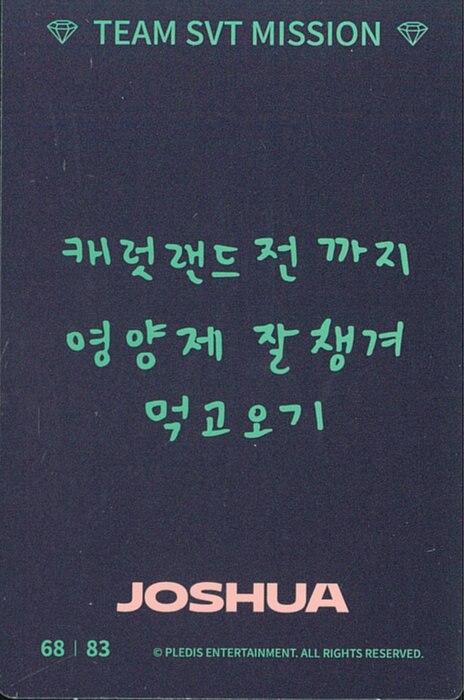 TEAM SVT MISSION
캐럿랜드 전 까지
영양제 잘 챙겨
먹고 오기
JOSHUA
68 | 83
© PLEDIS ENTERTAINMENT. ALL RIGHTS RESERVED.